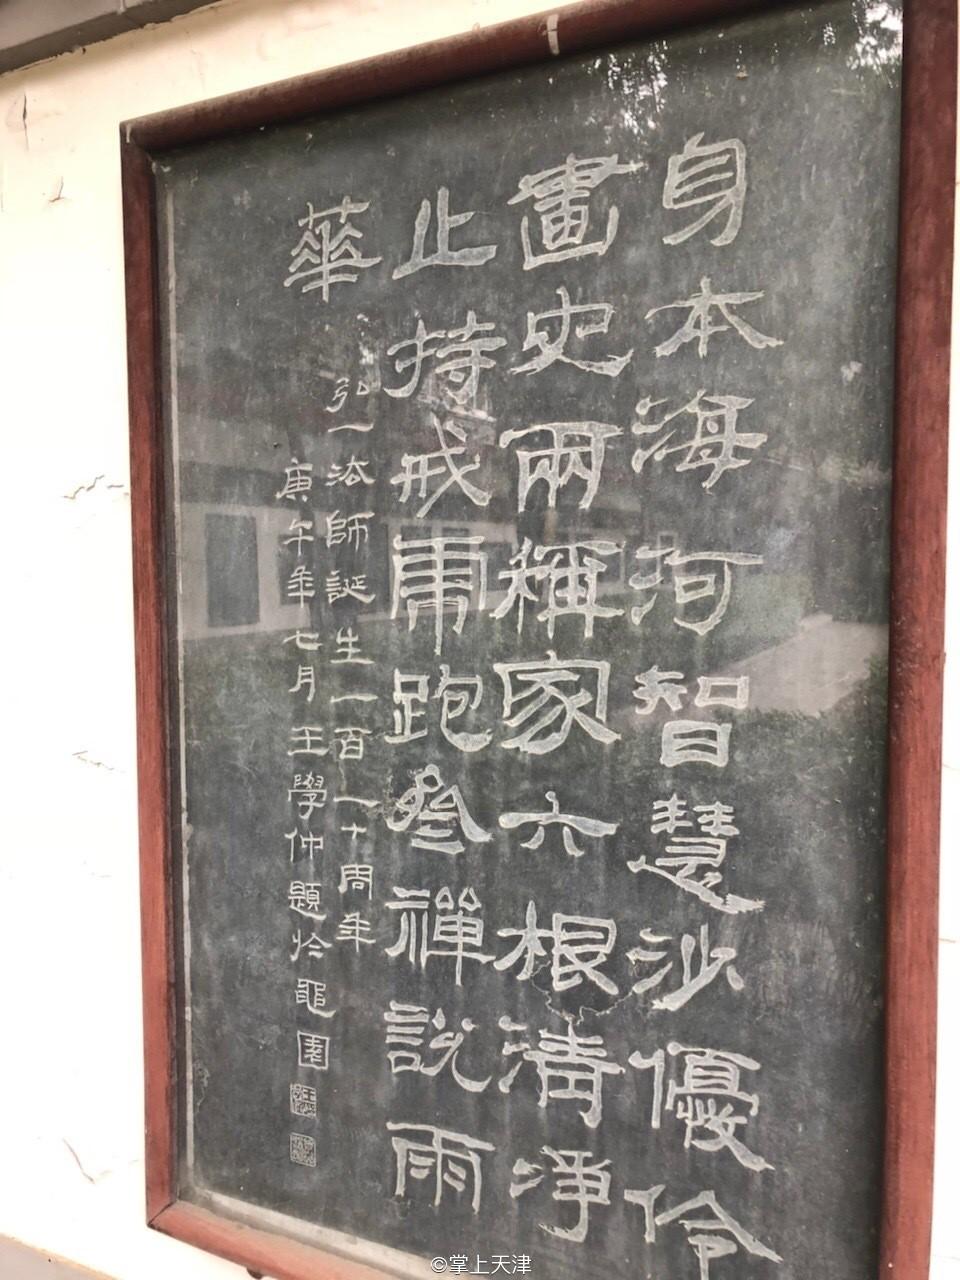 身本海河智慧沙優伶
畫史兩稱家六根清淨
止持戒虎跑參禪說雨
華
弘一法師誕生一百一十周年
庚午年七月王學仲題於黽園
©掌上天津